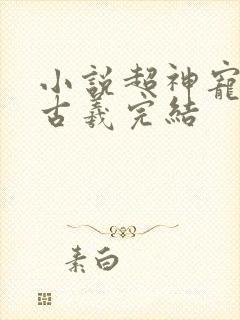 小說超神寵
古羲完結
素白